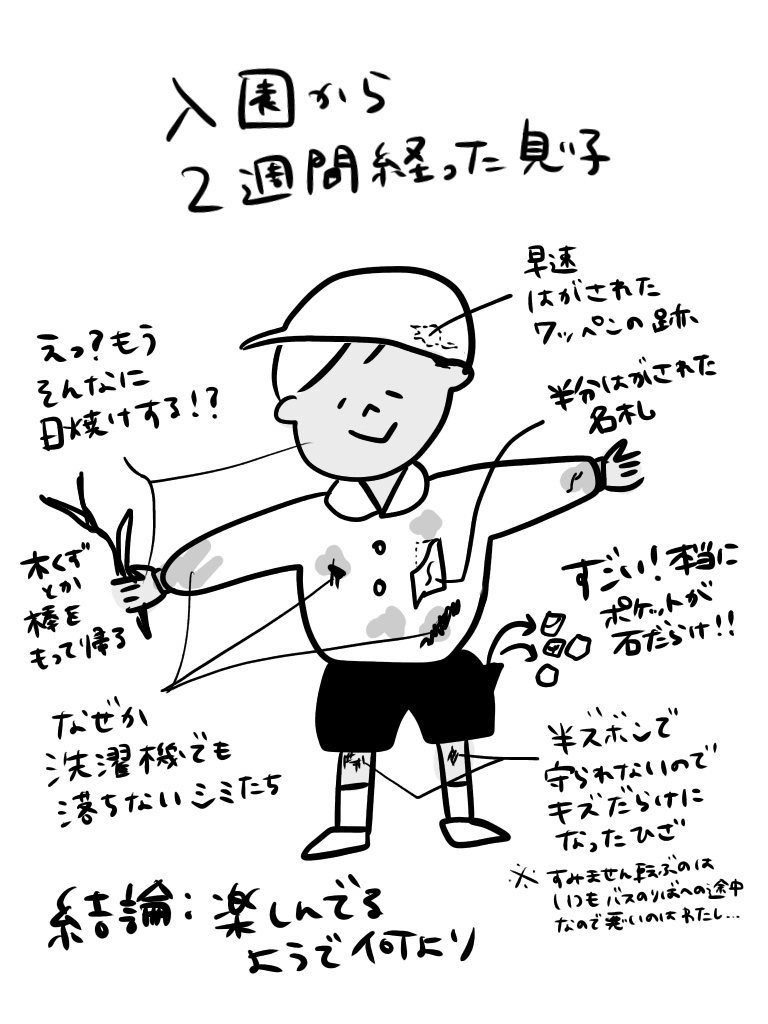 入園から
2週間経った息子
早速
はがされた
ワッペンの跡
えっ?もう
そんなに
日焼けする!?
半分はがされた
名札
木くず
とか
棒を
もって帰る
すごい!本当に
ポケットが
石だらけ!!
なぜか
洗濯機でも
落ちないシミたち
半ズボンで
守られないので
キズだらけに
なったひざ
※すみません転ぶのは
いつもバスのりばへの途中
なので悪いのはわたし…
結論:楽しんでる
ようで何より